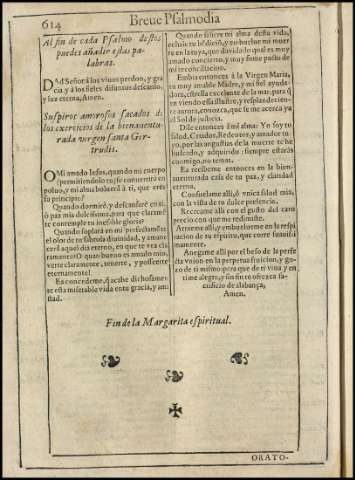 614
Breue Psalmodia
Al fin de cada Psalmo destos
puedes añadir estas pa-
labras.
DAd Señor à los viuos perdon, y gra
cia y à los fieles difuntos descanso,
y luz eterna, Amen.
Suspiros amorosos sacados de
los exercicios de la bienauentu-
rada virgen santa Ger-
trudis.
O Mi amado Iesus, quando mi cuerpo
(permitiendolo tu) se conuertirà en
poluo, y mi alma bolarà à ti, que eres
su principio?
Quando dormirè, y descansarè en ti,
ò paz mia dulcissima, para que claramẽ
te contemple tu gloria?
Quando soplarà en mi perfectamẽte
el olor de tu
clara-
mente? O quan bueno es amado mio,
verte claramente, tenerte, y posseerte
eternamente!
Ea concedeme, q̃ acabe dichosamen-
te esta miserable vida en tu gracia, y ami
stad.
Quando saliere mi alma desta vida,
echale tu bẽdiciõ, y tu
re en la tuya, que diuidolo qual es muy
amado concierto, y muy firme pacto de
mi reconciliacion.
Embia entonces à la Virgen Maria,
tu muy amable Madre, y mi fiel ayuda-
dora, estrella excelente de la mar, para q̃
en viendo essa illustre, y resplandecien-
te aurora, conozca, que se me acerca ya
el Sol de justicia.
Dile entonces à mi alma: Yo soy tu
salud, Criador, Redentor, y amador tu-
yo, por las angustias de la muerte te he
buscado, y adquirido: siempre estaràs
conmigo, no temas.
Ea recibeme entonces en la bien-
auenturada casa de tu paz, y claridad
eterna.
Consuelame alli, ò vnica salud mia,
con la vista de tu dulce presencia.
Recreame alli con el gusto del caro
precio con que me redimiste.
Atraeme alli, y embuelueme en la respi-
racion de tu espiritu, que corre suauissi-
mamente.
Anegame alli por el beso de la perfe-
cta vnion en la perpetua fruicion, y go-
zo de ti mismo: para que de ti viua y en
ti me alegre, y sin fin te ofrezca sa-
crificio de alabança,
Amen.
Fin de la Margarita espiritual.
ORATO-